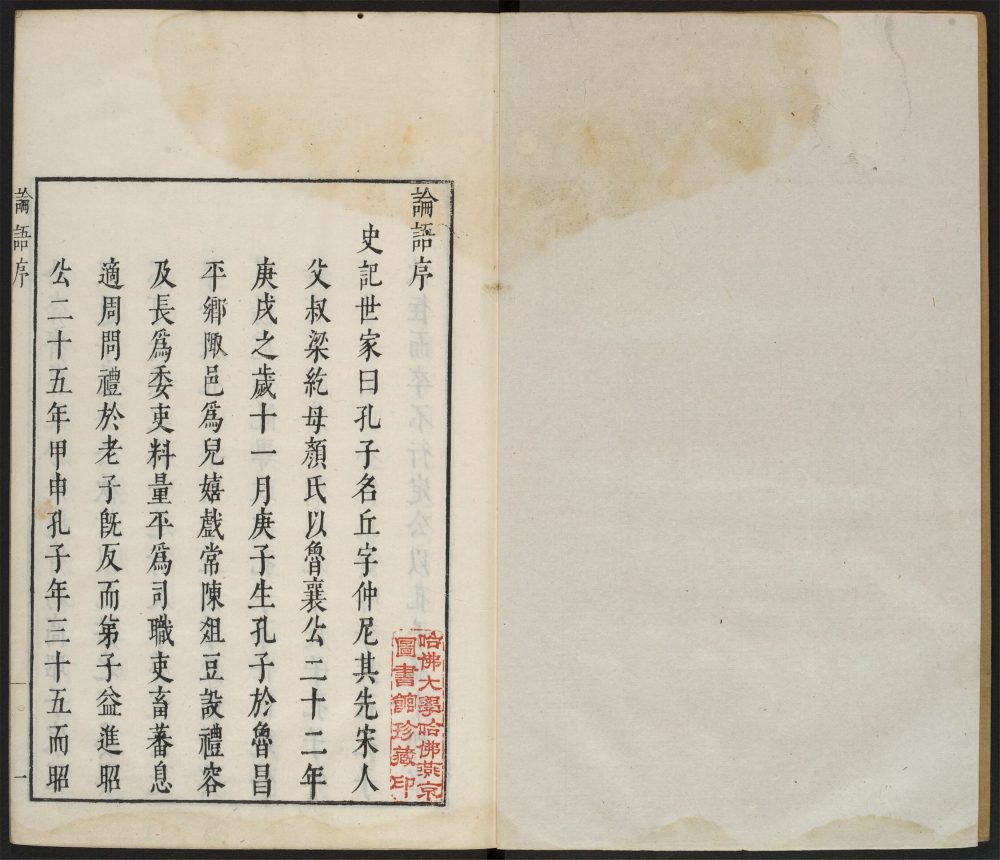 論語序
史記世家曰孔子名丘字仲尼其先宋人
父叔梁紇母顏氏以魯襄公二十二年
庚戌之歲十一月庚子生孔子於魯昌
平鄉陬邑爲兒嬉戲常陳俎豆設禮容
及長爲委吏料量平爲司職吏畜蕃息
適周問禮於老子旣反而弟子益進昭
公二十五年甲申孔子年三十五而昭
論語序
一
哈佛大學哈佛燕京
圖書館珍藏印